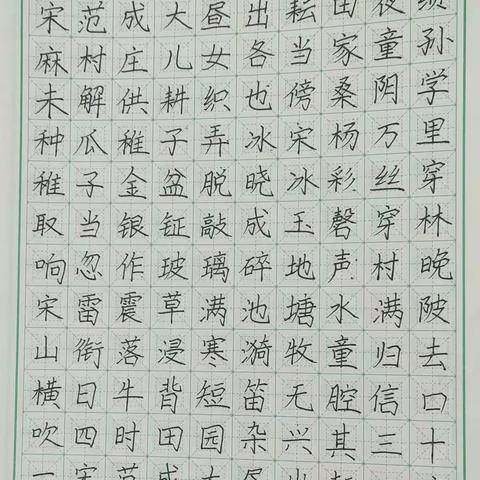 宋范成大昼出耘田夜绩
麻村庄儿女各当家童孙
未解供耕织也傍桑阴学
种瓜稚子弄冰宋杨万里
稚子金盆脱晓冰彩丝穿
取当银钲敲成玉磬穿林
响忽作玻璃碎地声村晚
宋雷震草满池塘水满陂
山衔落浸寒漪牧童归去
横日牛背短笛无腔信口
吹四时田园杂兴其三十
一宋范成大昼出